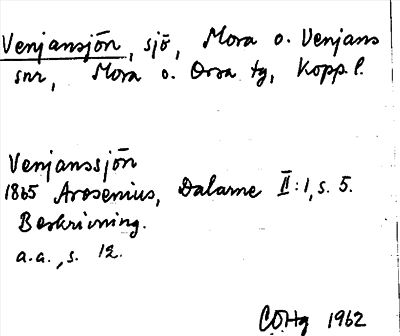 Venjansjön, sjö, Mora o. Venjans
snr, Mora o. Orsa tg, Kopp. l.
Venjanssjön
1865 Arosenius, Dalarne II:1, s. 5.
Beskrivning.
a.a., s. 12.
COHg 1962